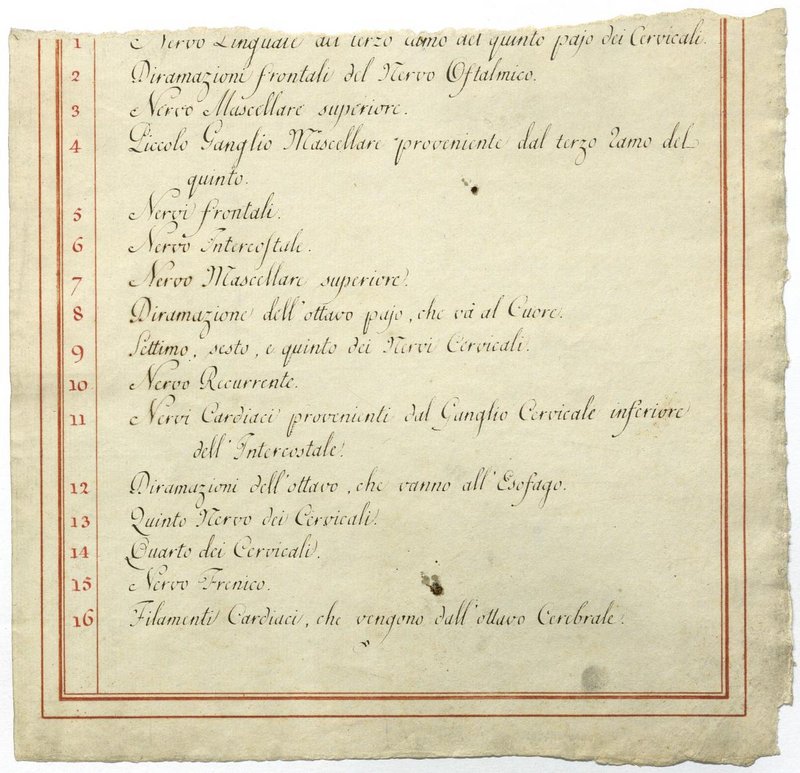 1 Nervo Linguale del terzo ramo del quinto pajo dei Cervicali.
2 Diramazioni frontali del Nervo Oftalmico.
3 Nervo Mascellare superiore.
4 Piccolo Ganglio Mascellare proveniente dal terzo ramo del
quinto.
5 Nervi frontali.
6 Nervo Intercostale.
7 Nervo Mascellare superiore.
8 Diramazione dell'ottavo pajo, che và al Cuore.
9 Settimo, sesto, e quinto dei Nervi Cervicali.
10 Nervo Recurrente.
11 Nervi Cardiaci provenienti dal Ganglio Cervicale inferiore
dell'Intercostale.
12 Diramazioni dell'ottavo, che vanno all'Esofago.
13 Quinto Nervo dei Cervicali.
14 Quarto dei Cervicali.
15 Nervo Frenico.
16 Filamenti Cardiaci, che vengono dall'ottavo Cerebrale.